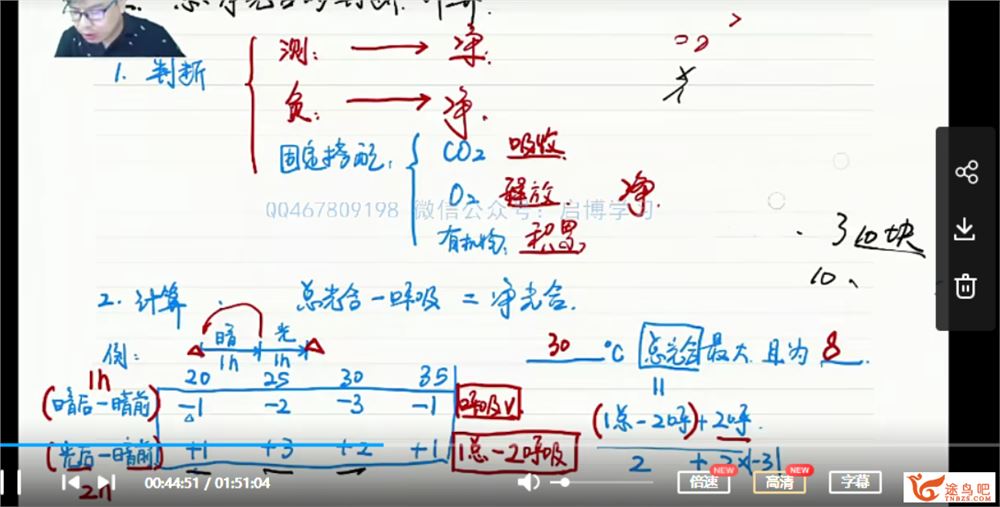 二. 总净光合的判断、计算.
1. 判断
测: → 净.
负: → 净.
固定搭配:
CO2 吸收
O2 释放 净.
有机物: 积累
QQ467809198 微信公众号：启博学习
3 10块
10、
2. 计算. 总光合－呼吸 = 净光合.
暗 光
1h 1h
例:
30 °C 总光合最大 且为 8.
1h 20 25 30 35
(暗后－暗前) -1 -2 -3 -1 呼吸V
(光后－暗前) +1 +3 +2 +1 1总－2呼吸
2h
=
(1总－2呼)+2呼.
2 + 2×|-3|
00:44:51 / 01:51:04
倍速 NEW
高清 NEW
字幕
途鸟吧
TNBZS.COM